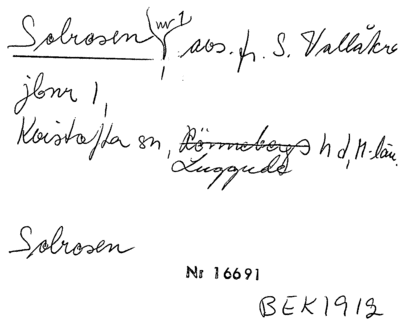 Solrosen nr 1 avs. fr. S. Vallåkra
jbnr 1,
Kvistofta sn, Rönnebergs hd, M-län.
Luggude
Solrosen
Nr 16691
BEK1912